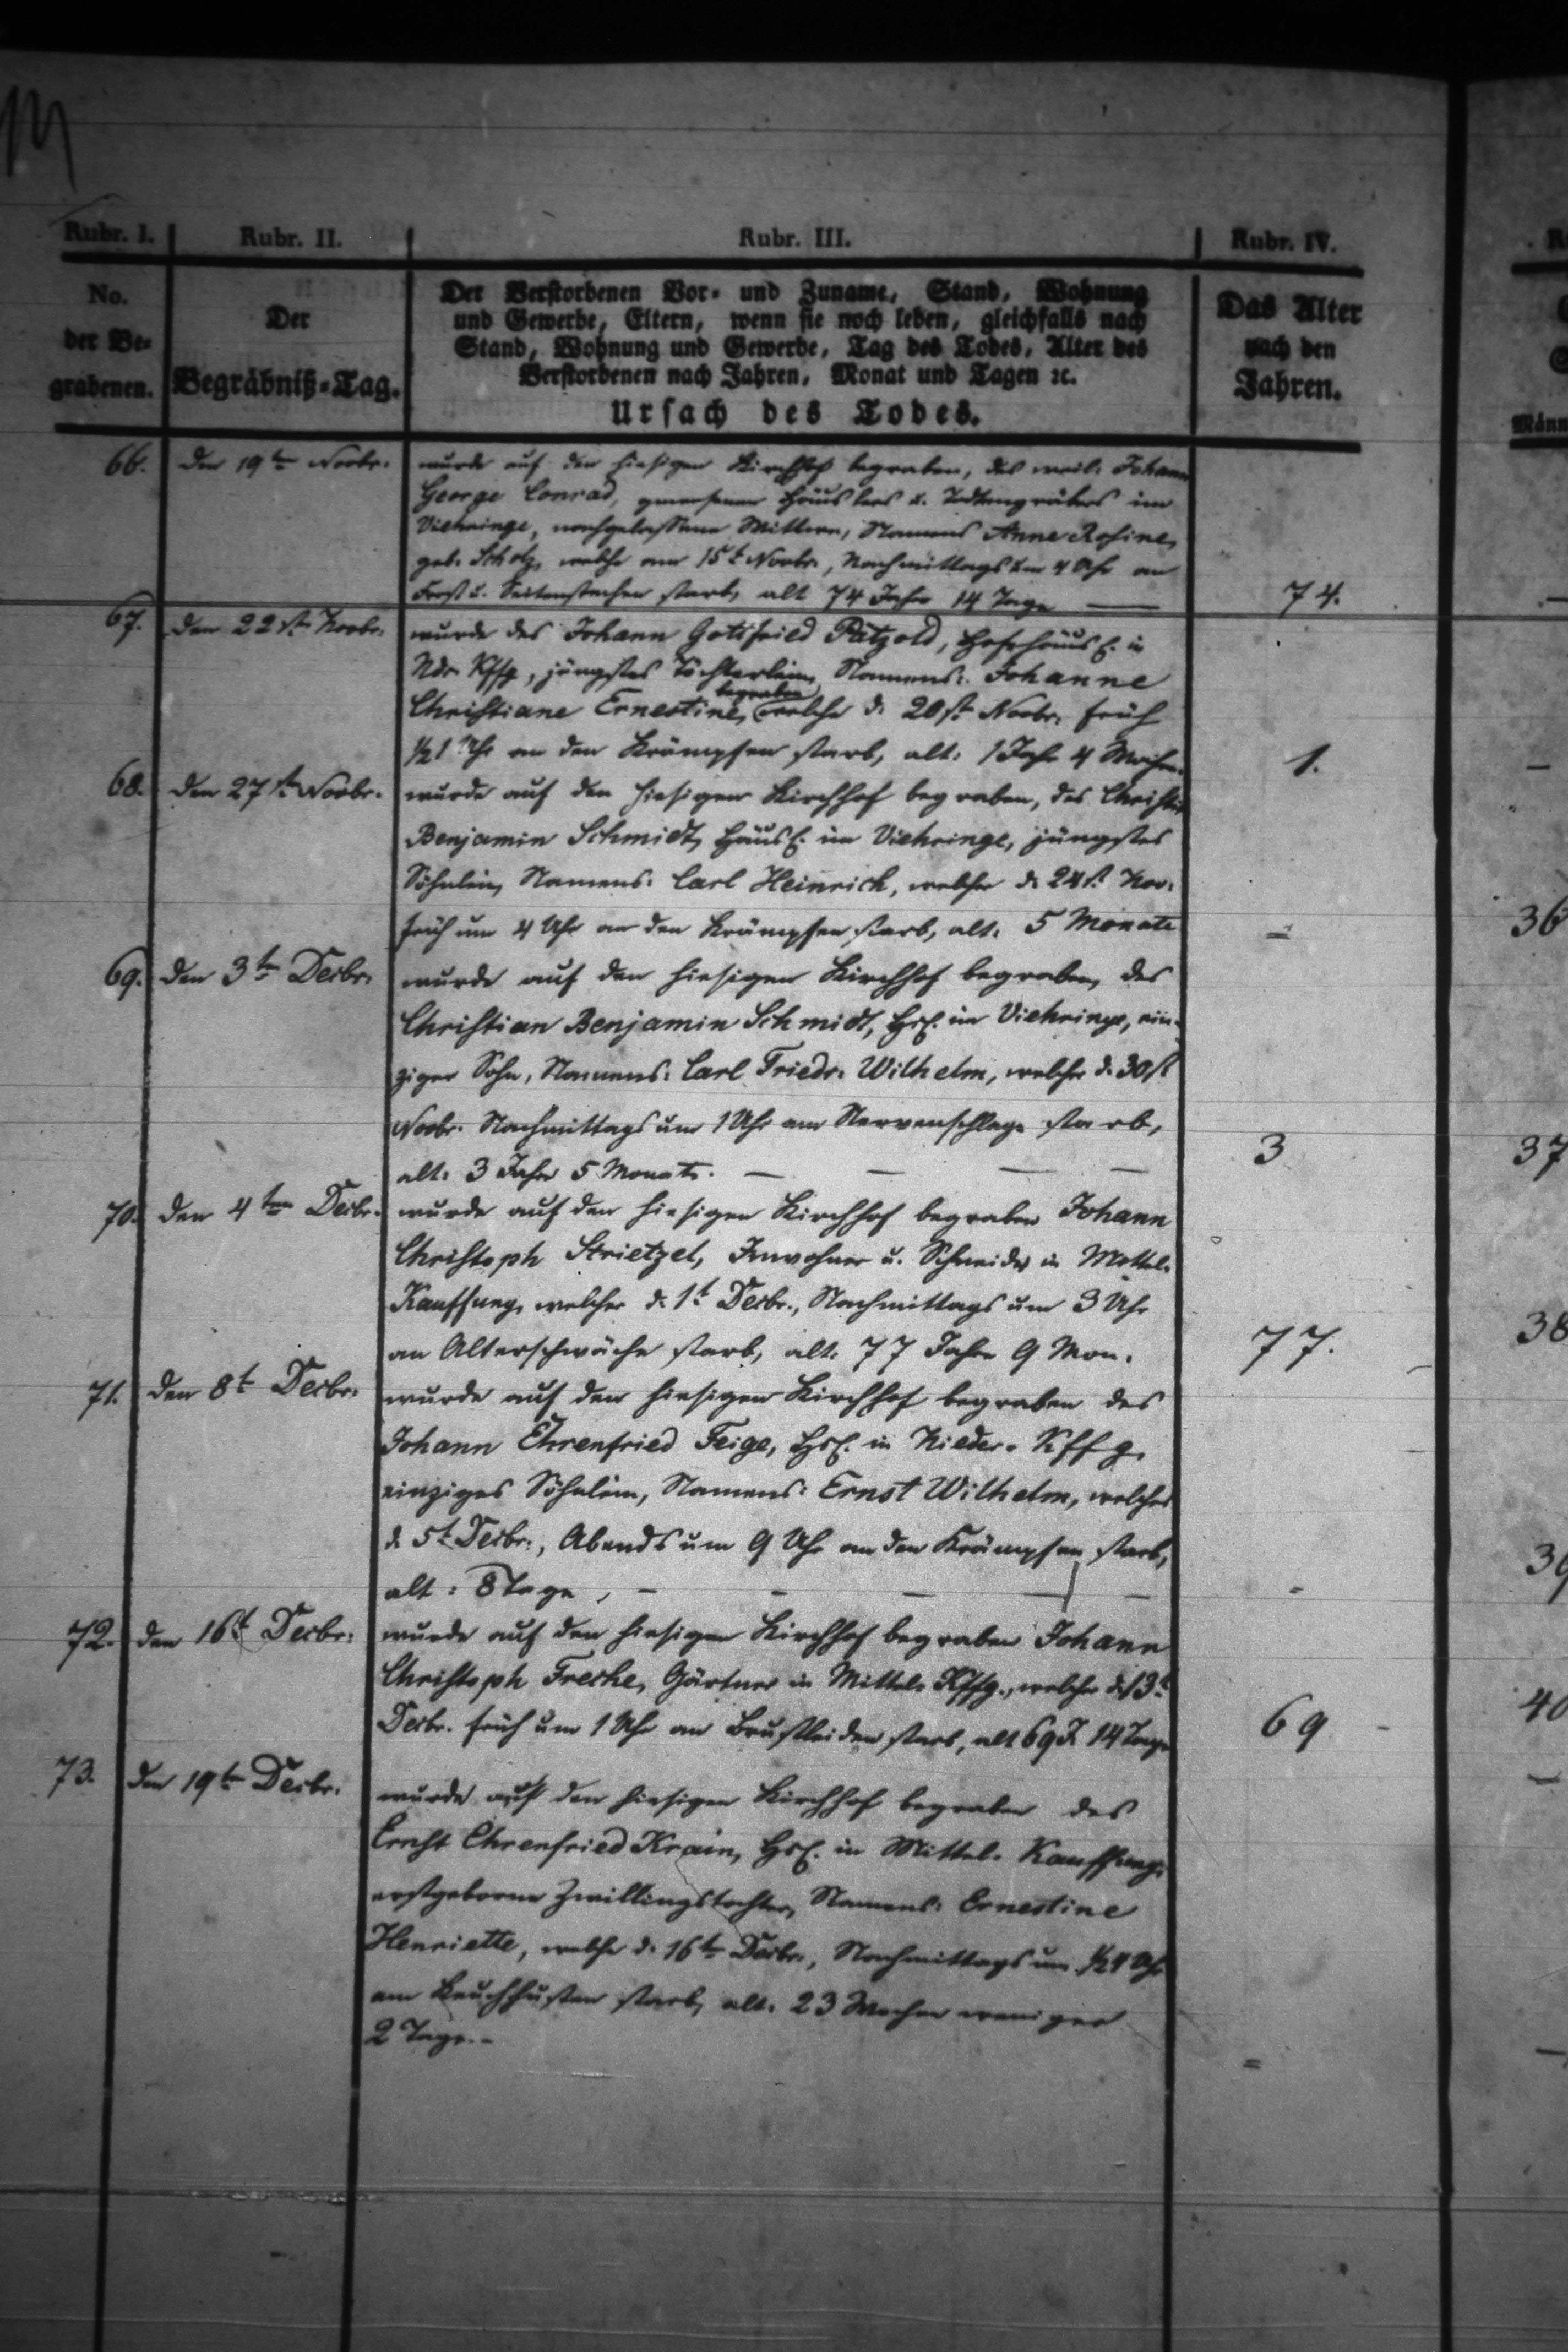 Rubr. I. Rubr. II. Rubr. III. Rubr. IV.
No. der Be= grabenen.
Der Begräbniß=Tag.
Der Verstorbenen Vor= und Zuname, Stand, Wohnung
und Gewerbe, Eltern, wenn sie noch leben, gleichfalls nach
Stand, Wohnung und Gewerbe, Tag des Todes, Alter des
Verstorbenen nach Jahren, Monat und Tagen ꝛc.
Ursach des Todes.
Das Alter nach den Jahren.
Männ
66. Den 19ten Novbr. wurde auf den hiesigen Kirchhof begraben, des weil. Johann
George Conrad, gewesener Häuslers u. Todtengräbers im
Viehringe, nachgelassene Wittwe, Namens Anne Rosine,
geb. Scholz, welche am 15t Novbr., Nachmittags um 4 Uhr an
Brust u. Seitenstechen starb, alt 74 Jahr 14 Tage — 74.
67. Den 22st. Novbr. wurde des Johann Gottfried Pätzold, in
Ndr. Kffg, jüngstes Töchterlein, Namens: Johanne
begraben
Christiane Ernestine, welche d. 20st. Novbr. früh
½1 Uhr an den Krämpfen starb, alt: 1 Jahr 4 Wochen. 1. —
68. Den 27st. Novbr. wurde auf den hiesigen Kirchhof begraben, des Christian
Benjamin Schmidt, Häusl. im Viehringe, jüngstes
Söhnlein, Namens: Carl Heinrich, welcher d. 24st. Nov.
früh um 4 Uhr an den Krämpfen starb, alt: 5 Monate = 36
69. Den 3t. Decbr. wurde auf den hiesigen Kirchhof begraben, des
Christian Benjamin Schmidt, Hsl. im Viehringe, ein-
ziger Sohn, Namens: Carl Friedr. Wilhelm, welcher d. 30st
Novbr. Nachmittags um 1 Uhr am Nervenschlage starb,
alt: 3 Jahre 5 Monate. — — — — 3 37
70. Den 4ten Decbr. wurde auf den hiesigen Kirchhof begraben Johann
Christoph Strietzel, Inwohner u. Schneider in Mittel-
Kauffung, welcher d. 1t Decbr., Nachmittags um 3 Uhr
an Alterschwäche starb, alt: 77 Jahre 9 Mon. 77. 38
71. Den 8t Decbr. wurde auf den hiesigen Kirchhof begraben des
Johann Ehrenfried Feige, Hsl. in Nieder-Kffg.
einziges Söhnlein, Namens: Ernst Wilhelm, welcher
d. 5t Decbr., Abends um 9 Uhr an den Krämpfen starb,
alt: 8 Tage, — — — — - 39
72. Den 16t Decbr. wurde auf den hiesigen Kirchhof begraben Johann
Christoph Fresche, Gärtner in Mittel-Kffg., welcher d. 13t
Decbr. früh um 1 Uhr an Brustleiden starb, alt 69 J. 14 Tage 69 - 40
73. Den 19t Decbr. wurde auf den hiesigen Kirchhof begraben des
Ernst Ehrenfried Krain, Hsl. in Mittel-Kauffung,
erstgeborne Zwillingstochter, Namens: Ernestine
Henriette, welche d. 16t Decbr., Nachmittags um ½4 Uhr
am Keuchhusten starb, alt: 23 Wochen weniger
2 Tage. - =